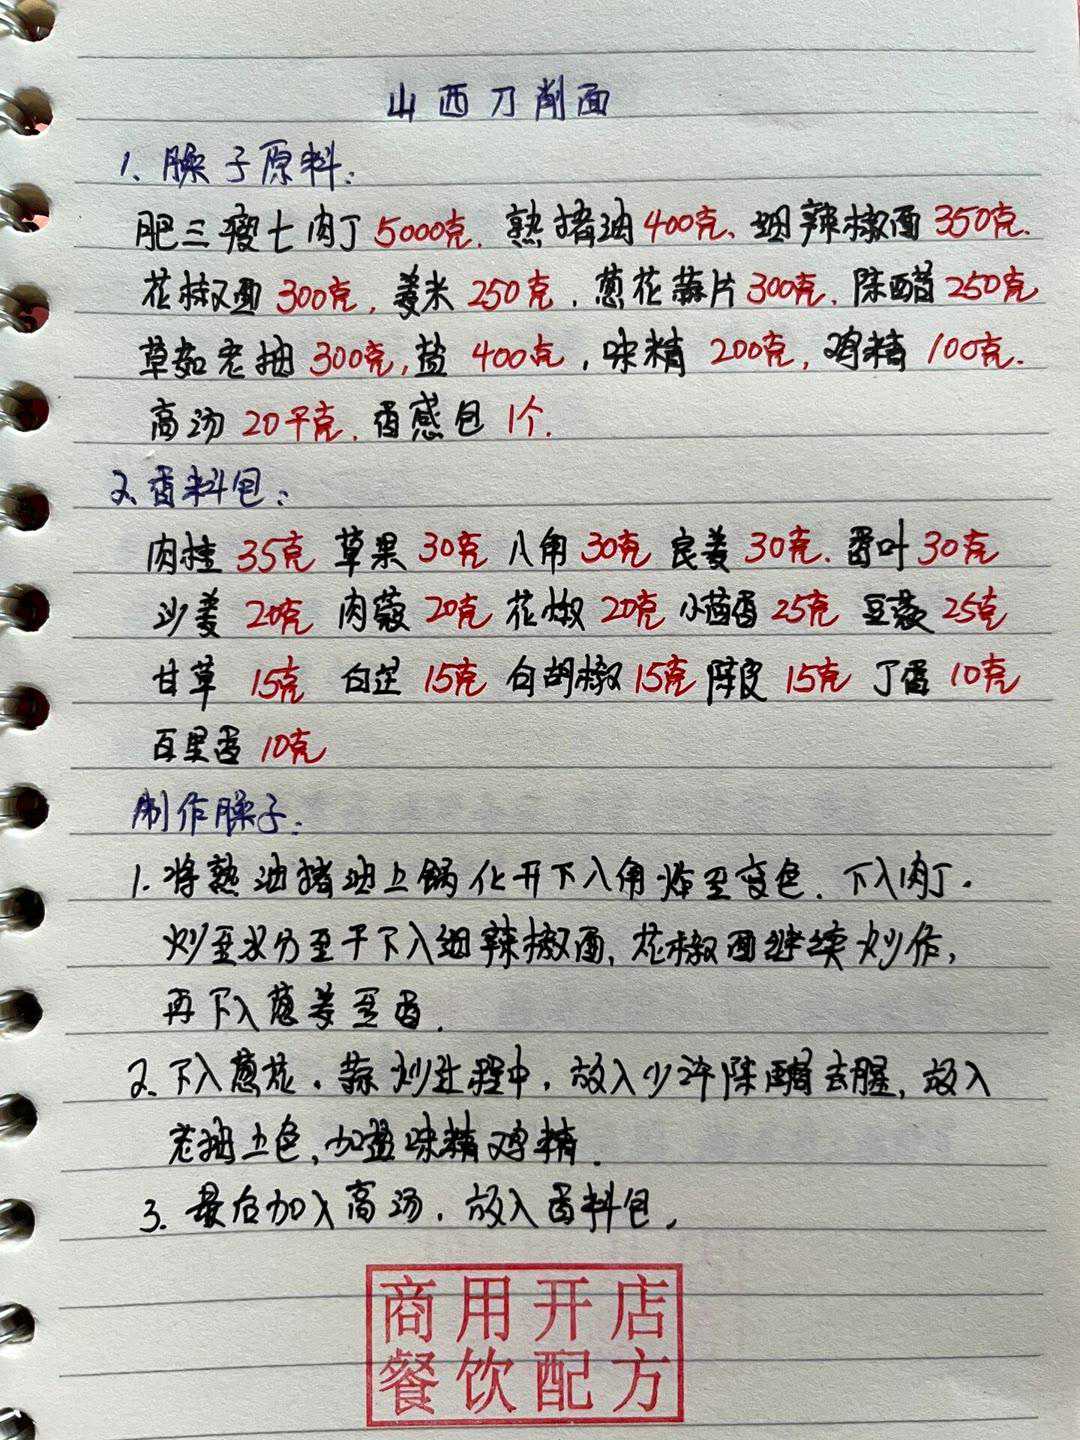 山西刀削面
1、臊子原料:
肥三瘦七肉丁5000克.熟猪油400克、细辣椒面350克.
花椒面300克,姜米250克,葱花蒜片300克.陈醋250克
草菇老抽300克,盐400克,味精200克,鸡精100克.
高汤20千克.香感包1个.
2、香料包:
肉桂35克 草果30克 八角30克 良姜30克.香叶30克
沙姜20克 肉蔻20克 花椒20克 小茴香25克 豆蔻25克
甘草15克 白芷15克 白胡椒15克 陈皮15克 丁香10克
百里香10克
制作臊子:
1.将熟油猪油上锅化开下入角炸至变色.下入肉丁.
炒至水分至干下入细辣椒面,花椒面继续炒作,
再下入葱姜至香.
2.下入葱花.蒜炒过程中.放入少许陈醋去腥,放入
老抽上色,加盐味精鸡精.
3.最后加入高汤.放入香料包,
商用开店
餐饮配方